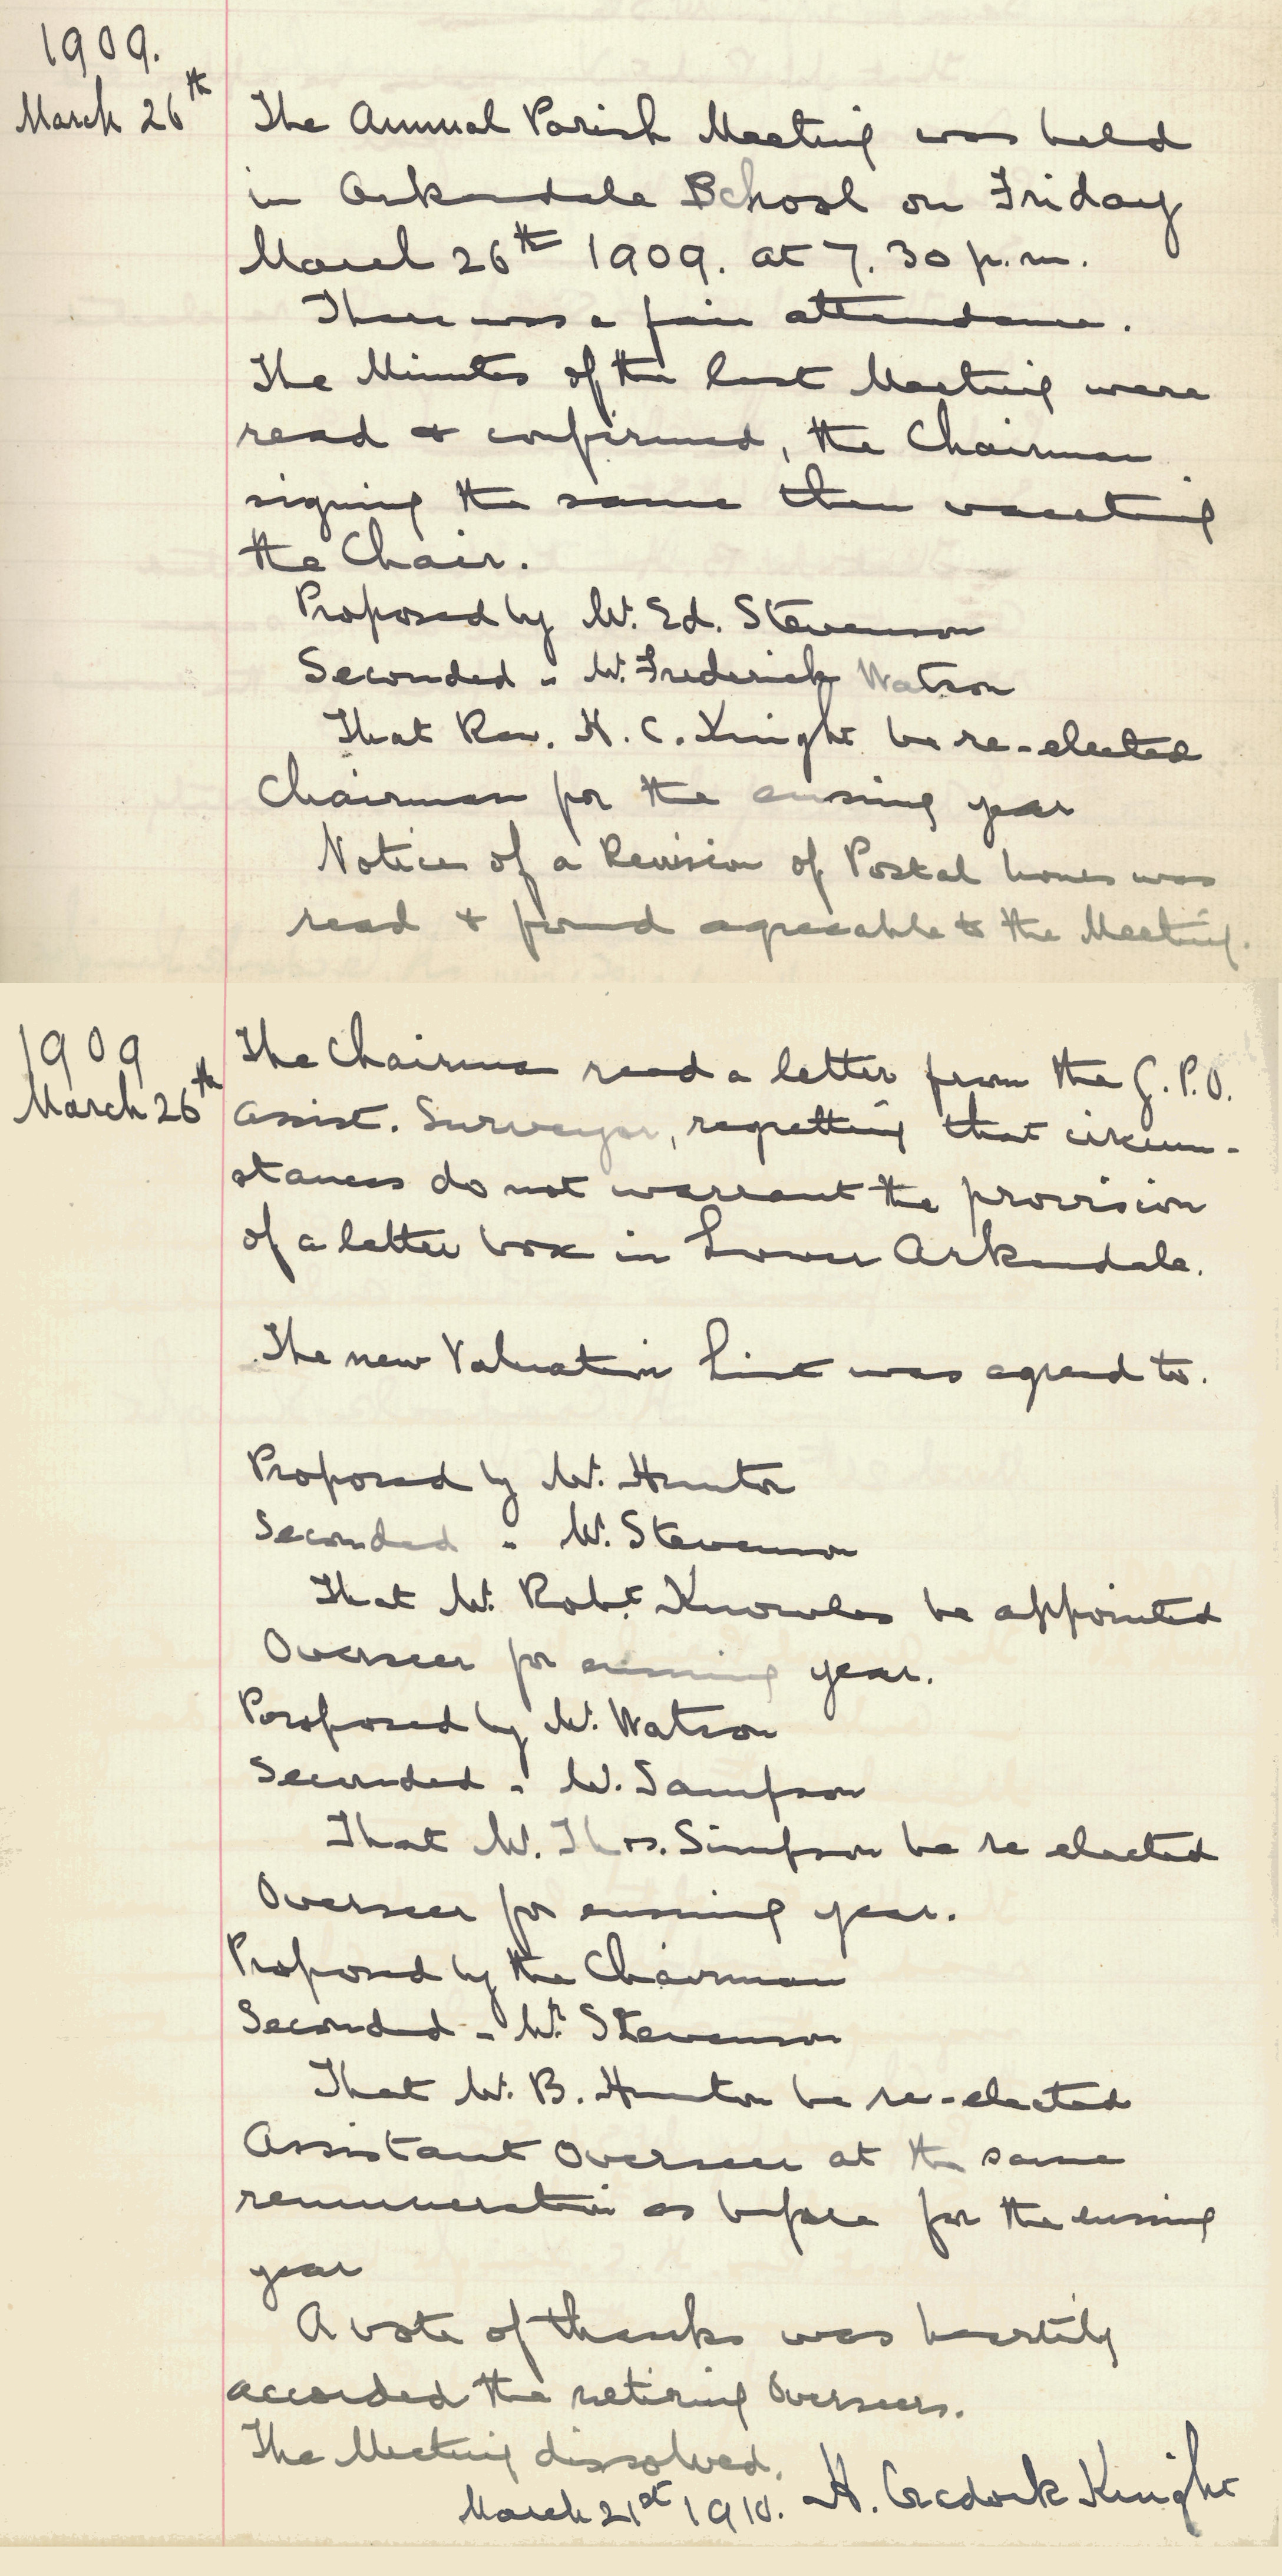 1909.
March 26th
The Annual Parish Meeting was held
in Arkendale School on Friday
March 26th 1909. at 7.30 p.m.
There was a fair attendance.
The Minutes of the last Meeting were
read & confirmed, the Chairman
signing the same then vacating
the Chair.
Proposed by Mr. Ed. Stevenson
Seconded " Mr. Frederick Watson
That Rev. H. C. Knight be re-elected
Chairman for the ensuing year
Notice of a Revision of Postal hours was
read & found agreeable to the Meeting.
1909
March 26th
The Chairman read a letter from the G.P.O.
Assist. Surveyor, regretting that circum-
stances do not warrant the provision
of a letter box in Lower Arkendale.
The new Valuation List was agreed to.
Proposed by Mr. Hunton
Seconded " Mr. Stevenson
That Mr. Robt. Knowles be appointed
Overseer for ensuing year.
Porposed by Mr. Watson
Seconded " Mr. Sampson
That Mr. Thos. Simpson be re elected
Overseer for ensuing year.
Proposed by the Chairman
Seconded " Mr. Stevenson
That Mr. B. Hunton be re-elected
Assistant Overseer at the same
remuneration as before for the ensuing
year
A vote of thanks was heartily
accorded the retiring Overseers.
The Meeting dissolved.
March 21st 1910. H. Knight